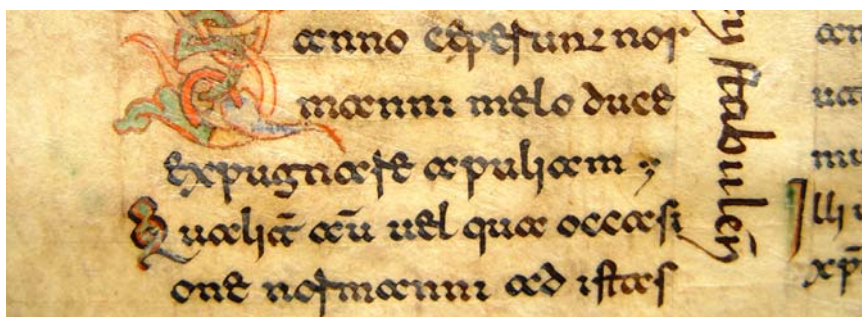 anno ceperunt nor
manni melo duce
expugnare apuliam ;
Qualit̄ aū uel qua occasi
one normanni ad istas
stabulen̄